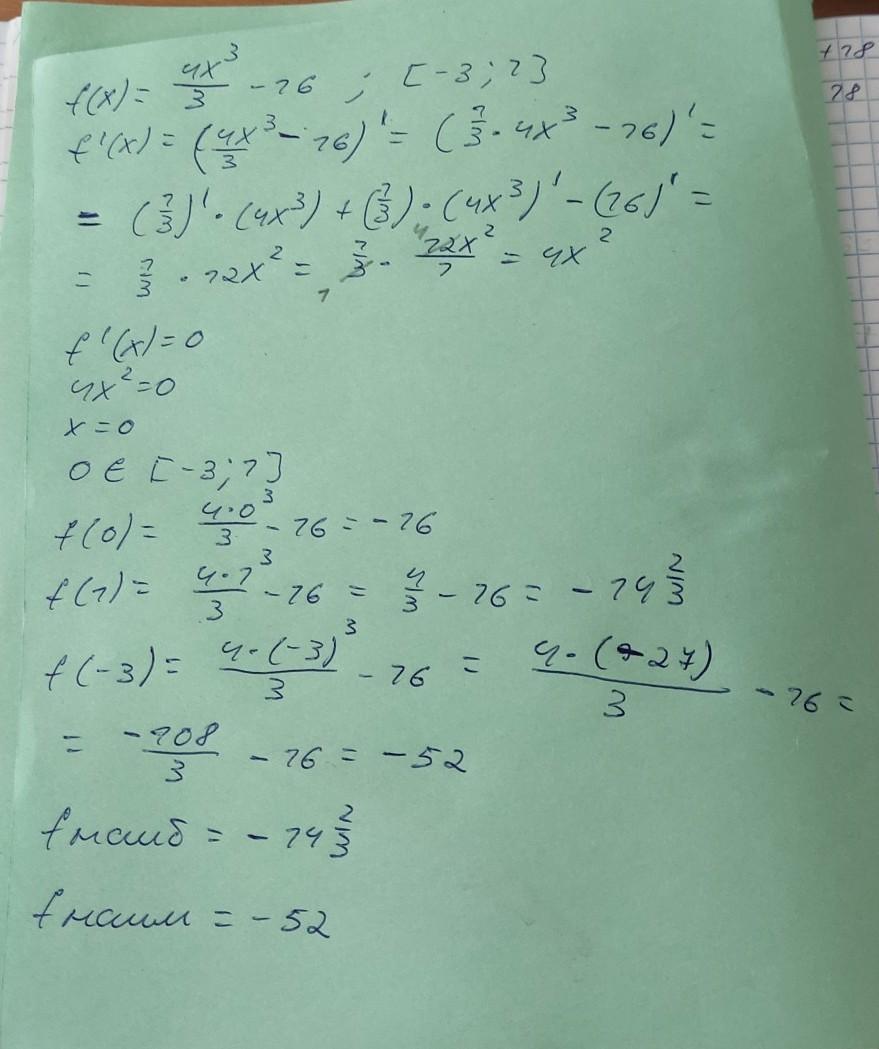 f(x) = 4x³/3 - 16 ; [-3; 1]
f'(x) = (4x³/3 - 16)' = (1/3 · 4x³ - 16)' =
= (1/3)' · (4x³) + (1/3) · (4x³)' - (16)' =
= 1/3 · 12x² = 1/3 · 12x²/1 = 4x²
f'(x) = 0
4x² = 0
x = 0
0 ∈ [-3; 1]
f(0) = 4·0³/3 - 16 = -16
f(1) = 4·1³/3 - 16 = 4/3 - 16 = -14 2/3
f(-3) = 4·(-3)³/3 - 16 = 4·(-27)/3 - 16 =
= -108/3 - 16 = -52
fнаиб = -14 2/3
fнаим = -52
+18
18